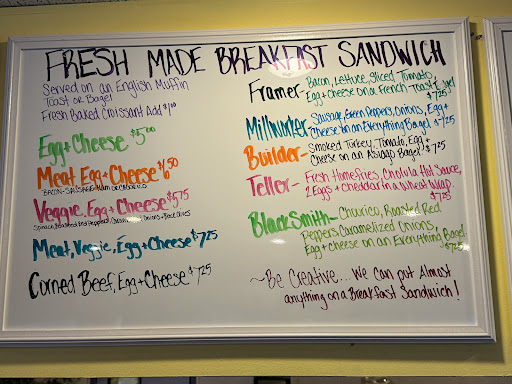 FRESH MADE BREAKFAST SANDWICH
Served on an English Muffin
Toast or Bagel
Fresh Baked Croissant Add $1.00
Egg + Cheese $5.00
Meat Egg + Cheese $6.50
BACON - SAUSAGE - HAM OR
Veggie, Egg + Cheese $5.75
Spinach, Roasted Red Peppers, Onions + Black Olives
Meat, Veggie, Egg + Cheese $7.25
Corned Beef, Egg + Cheese $7.25
Framer - Bacon, Lettuce, Sliced Tomato,
Egg + Cheese on a French Toast Bagel
$7.25
Millworker - Sausage, Green Peppers, Onions, Egg +
Cheese on an Everything Bagel $7.25
Builder - Smoked Turkey, Tomato, Egg +
Cheese on an Asiago Bagel $7.25
Teller - Fresh Homefries, Cholula Hot Sauce,
2 Eggs + Cheddar in a Wheat Wrap.
$7.25
BlackSmith - Chourico, Roasted Red
Peppers Caramelized Onions,
Egg + cheese on an Everything Bagel
$7.25
~ Be Creative... We can put Almost
anything on a Breakfast Sandwich!